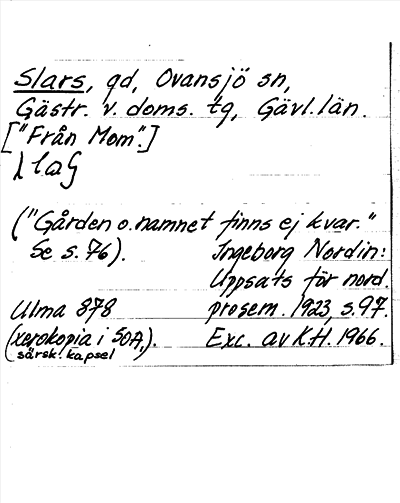 Slars, gd, Ovansjö sn,
Gästr. v. doms. tg, Gävl. län.
["Från Mom".]
("Gården o. namnet finns ej kvar."
Se s. 76).
Ingeborg Nordin:
Uppsats för nord.
Ulma 878
prosem. 1923, s. 97.
(xerokopia i SOA,).
särsk. kapsel
Exc. av K.H. 1966.